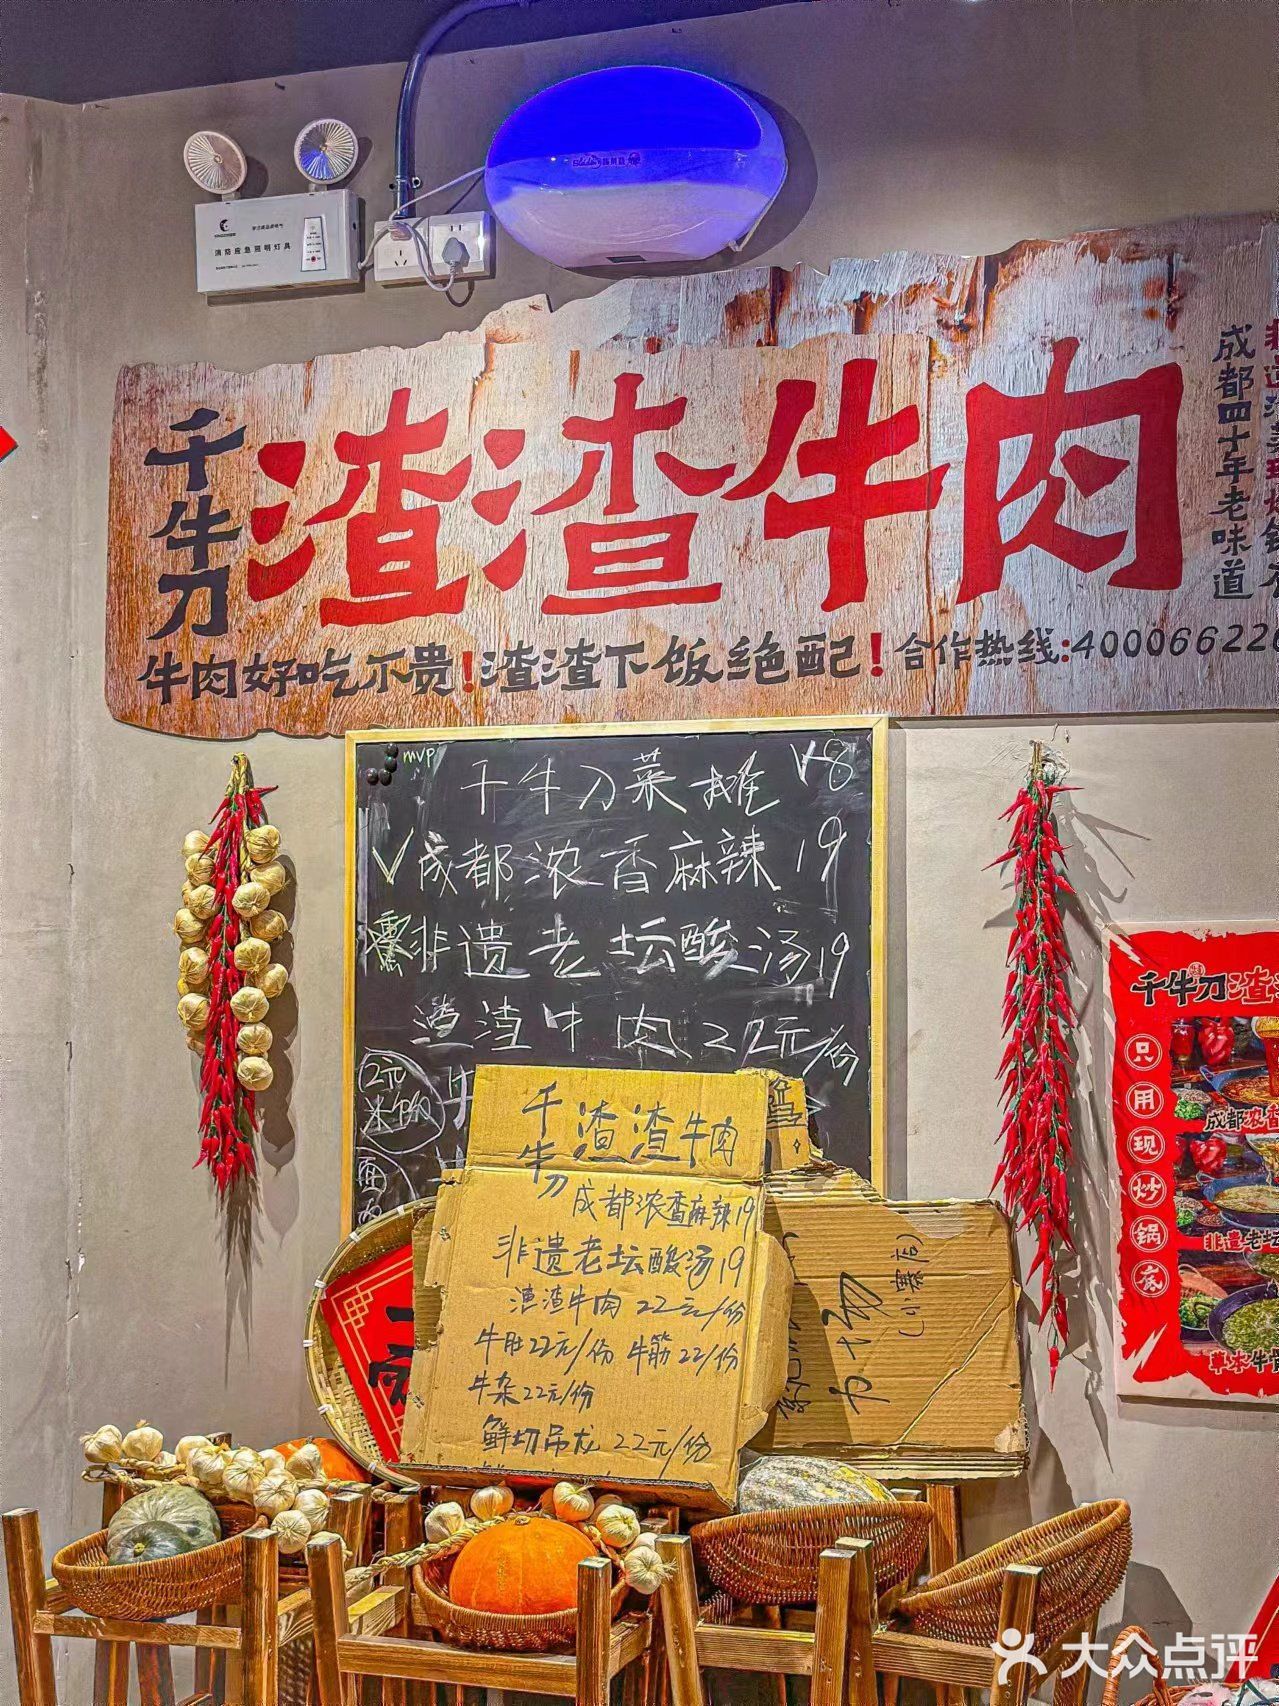 消防应急照明灯具
千牛刀
渣渣牛肉
成都四十年老味道
牛肉好吃不贵!渣渣下饭绝配!合作热线:400066226
mvp
千牛刀菜摊
成都浓香麻辣 19
非遗老坛酸汤 19
渣渣牛肉 22元/份
12元
千牛刀
渣渣牛肉
成都浓香麻辣19
非遗老坛酸汤19
渣渣牛肉 22元/份
牛肚22元/份 牛筋22/份
牛杂22元/份
鲜切吊龙 22元/份
(小寨店)
千牛刀渣
只用现炒锅底
成都浓香
非遗老坛
草本牛骨
大众点评